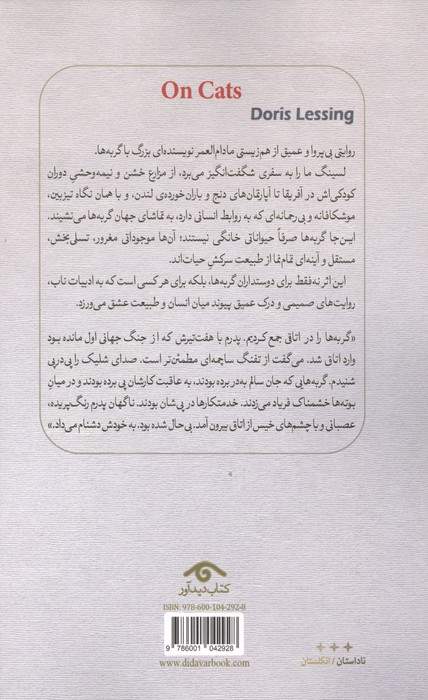 On Cats
Doris Lessing
روایتی بی‌پروا و عمیق از هم‌زیستی مادام‌العمر نویسنده‌ای بزرگ با گربه‌ها.
لسینگ ما را به سفری شگفت‌انگیز می‌برد، از مزارع خشن و نیمه‌وحشیِ دوران
کودکی‌اش در آفریقا تا آپارتمان‌های دنج و باران‌خورده‌ی لندن، و با همان نگاه تیزبین،
موشکافانه و بی‌رحمانه‌ای که به روابط انسانی دارد، به تماشای جهان گربه‌ها می‌نشیند.
این‌جا گربه‌ها صرفاً حیواناتی خانگی نیستند؛ آن‌ها موجوداتی مغرور، تسلی‌بخش،
مستقل و آینه‌ای تمام‌نما از طبیعت سرکش حیات‌اند.
این اثر نه‌فقط برای دوستداران گربه‌ها، بلکه برای هر کسی است که به ادبیات ناب،
روایت‌های صمیمی و درک عمیق پیوند میان انسان و طبیعت عشق می‌ورزد.
«گربه‌ها را در اتاقی جمع کردیم. پدرم با هفت‌تیرش که از جنگ جهانی اول مانده بود
وارد اتاق شد. می‌گفت از تفنگ ساچمه‌ای مطمئن‌تر است. صدای شلیک را پی‌در‌پی
شنیدم. گربه‌هایی که جان سالم به‌در برده بودند، به عاقبت کارشان پی برده بودند و در میانِ
بوته‌ها خشمناک فریاد می‌زدند. خدمتکارها در پی‌شان بودند. ناگهان پدرم رنگ‌پریده،
عصبانی و با چشم‌های خیس از اتاق بیرون آمد. بی‌حال شده بود. به خودش دشنام می‌داد.»
کتاب دیدآور
ISBN: 978-600-104-292-8
9 786001 042928
www.didavarbook.com
ناداستان / انگلستان